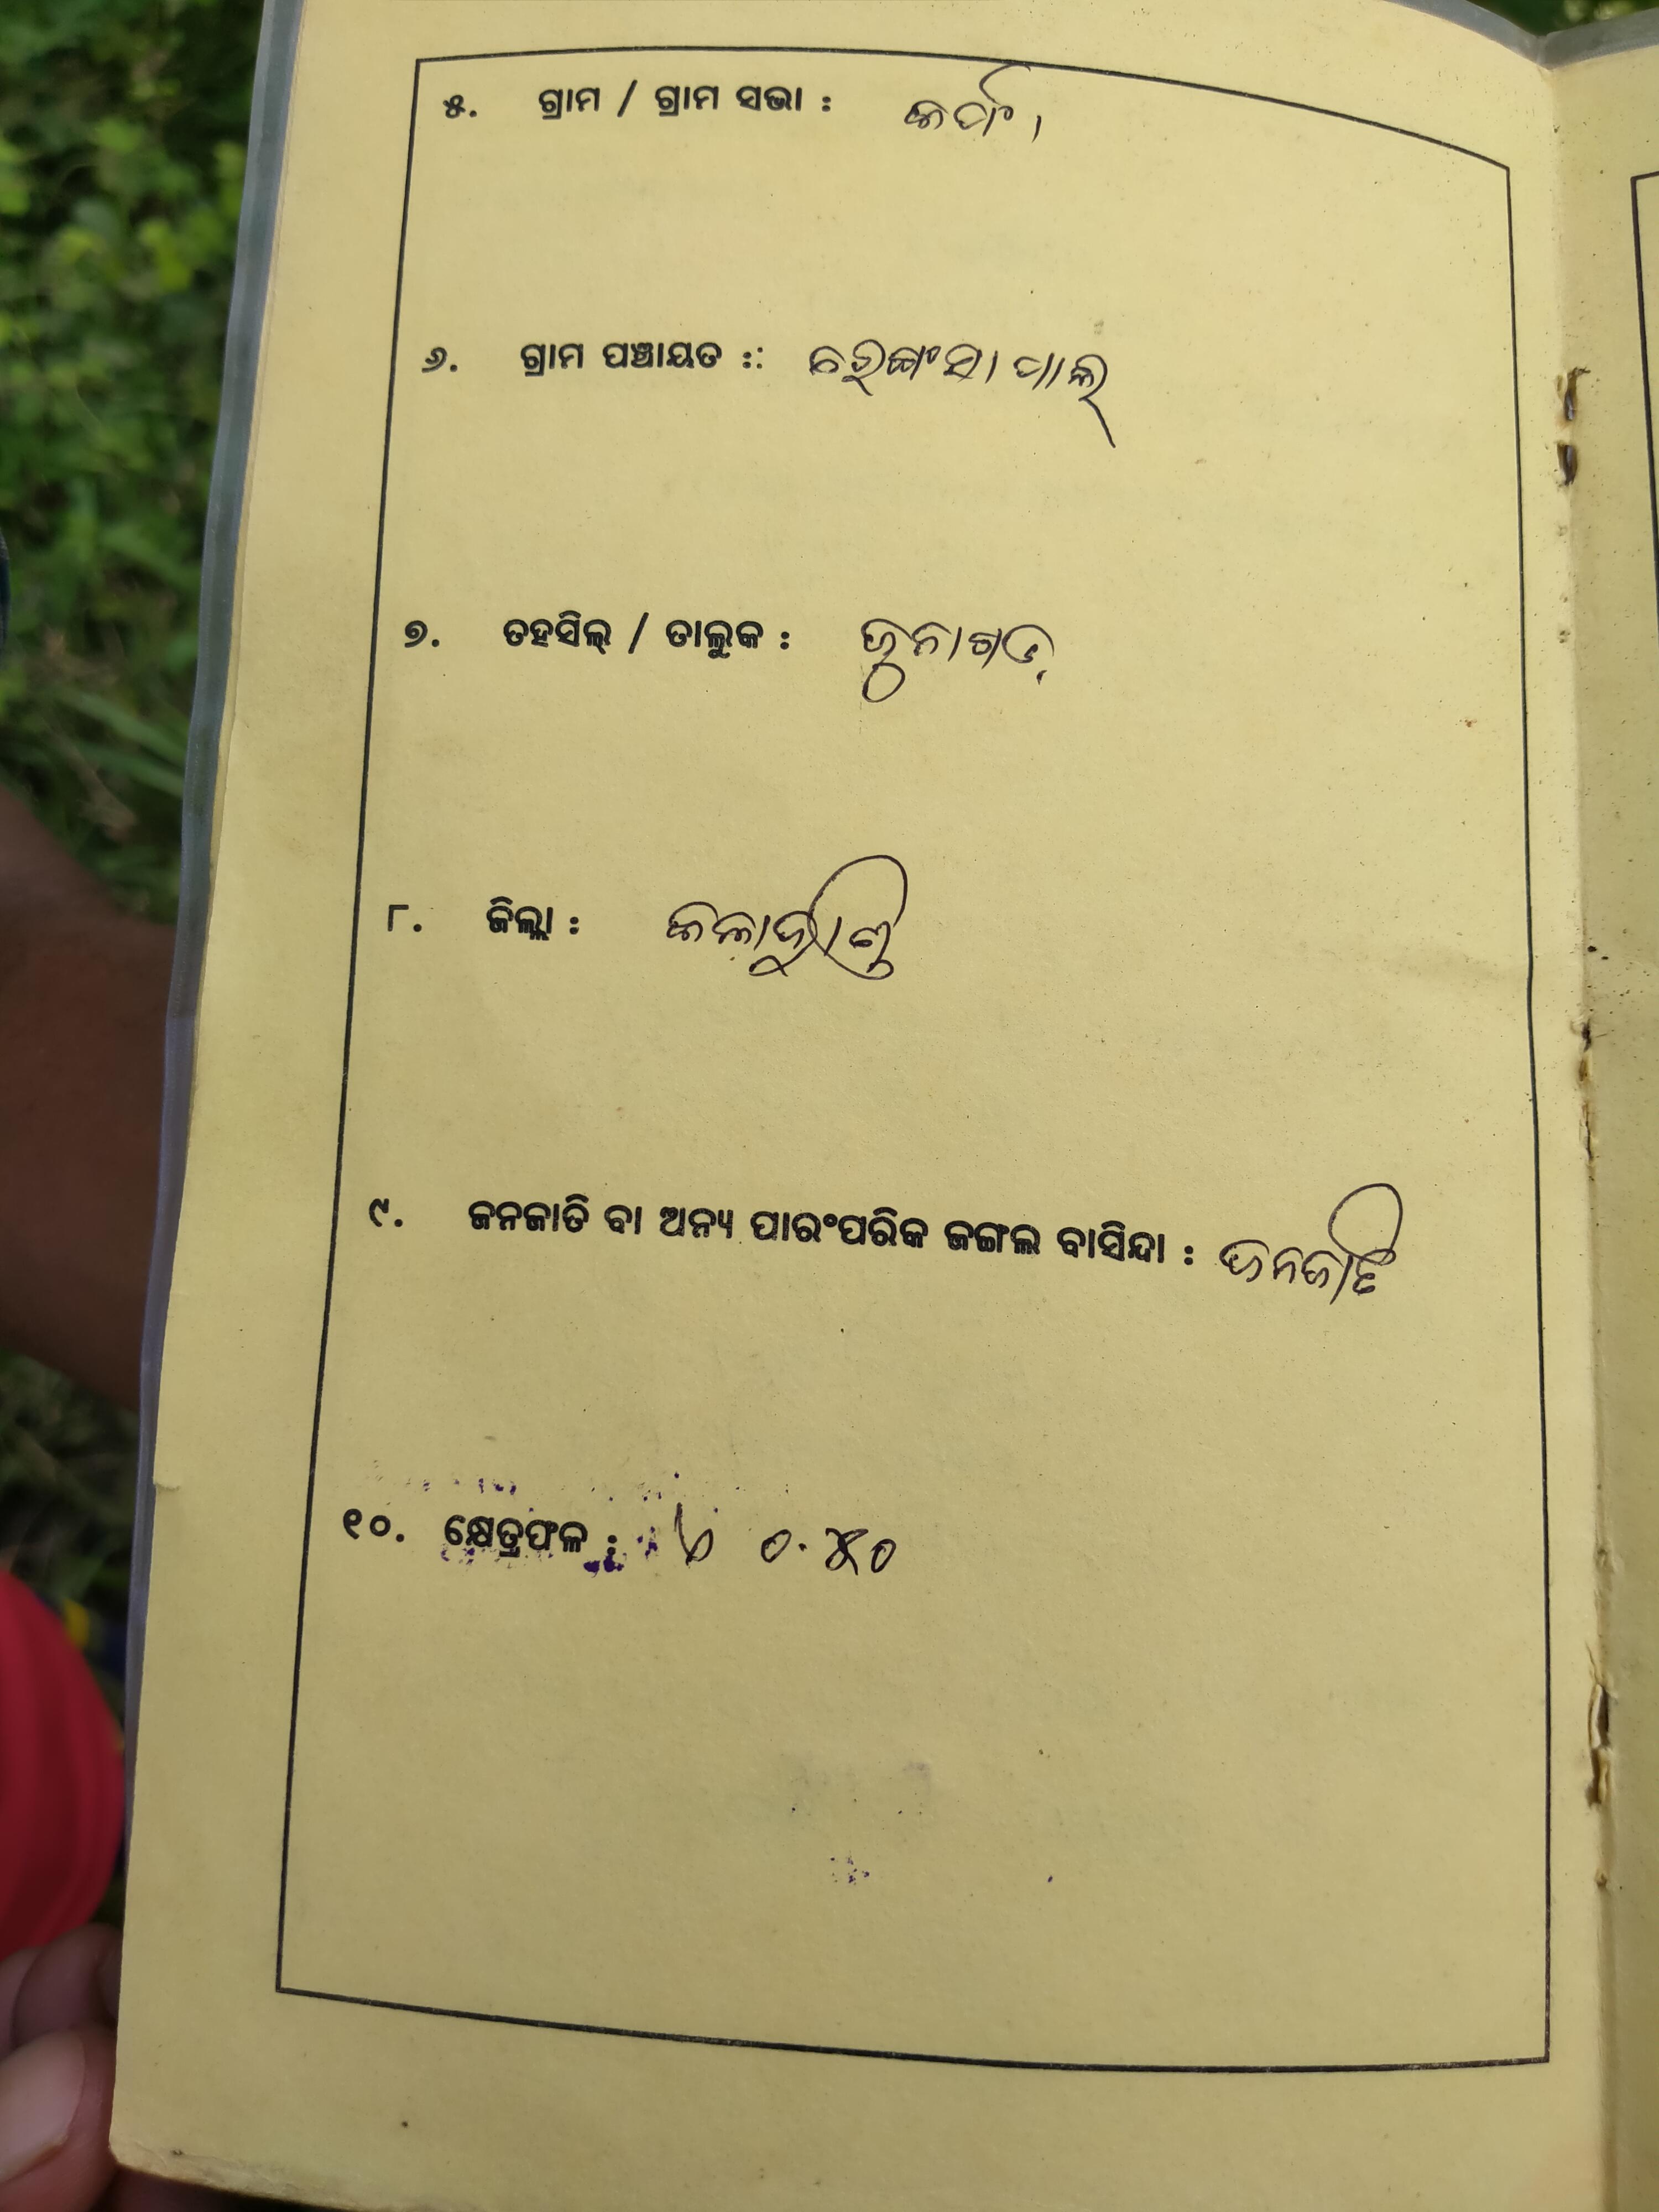 ୫. ଗ୍ରାମ / ଗ୍ରାମ ସଭା :
୬. ଗ୍ରାମ ପଞ୍ଚାୟତ :: ରେଙ୍ଗସାପାଲ୍
୭. ତହସିଲ୍ / ତାଲୁକ : ଜୁନାଗଡ଼
୮. ଜିଲ୍ଲା : କଳାହାଣ୍ଡି
୯. ଜନଜାତି ବା ଅନ୍ୟ ପାରଂପରିକ ଜଙ୍ଗଲ ବାସିନ୍ଦା : ଜନଜାତି
୧୦. କ୍ଷେତ୍ରଫଳ : ୦.୪୦